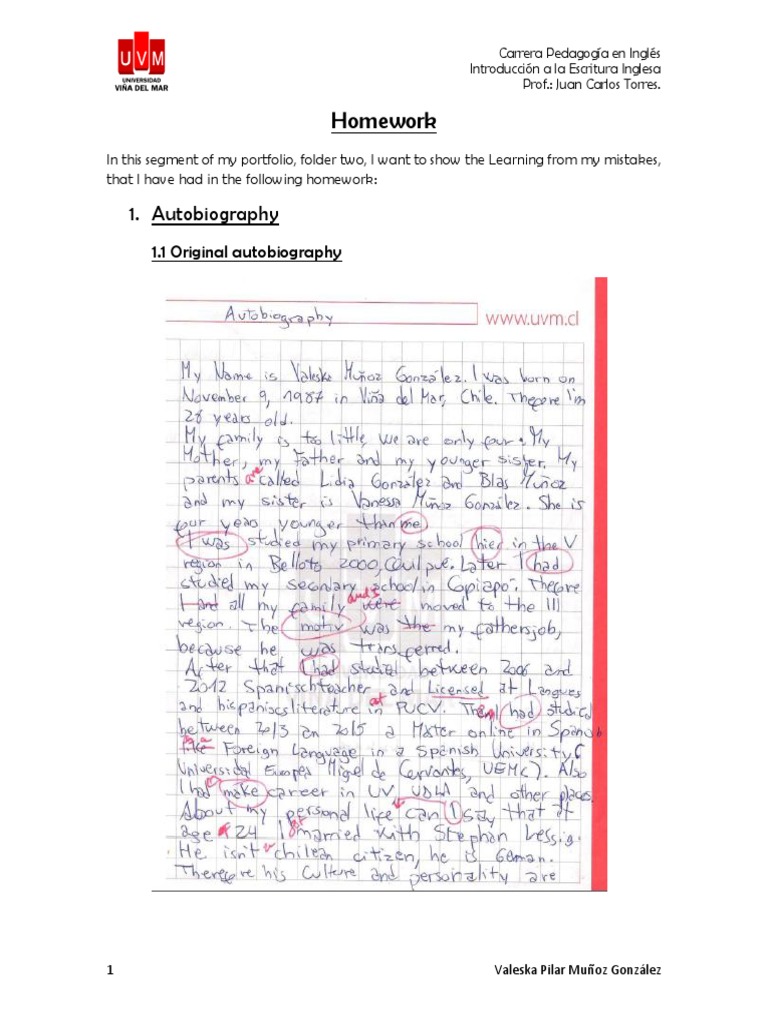 UVM
UNIVERSIDAD
VIÑA DEL MAR
Carrera Pedagogía en Inglés
Introducción a la Escritura Inglesa
Prof.: Juan Carlos Torres.
Homework
In this segment of my portfolio, folder two, I want to show the Learning from my mistakes,
that I have had in the following homework:
1. Autobiography
1.1 Original autobiography
Autobiography
www.uvm.cl
My Name is Valeska Muñoz González. I was born on
November 9, 1987 in Viña del Mar, Chile. Thefore I'm
28 years old.
My family is too little, we are only four: My
Mother, my Father and my younger sister. My
parents are called Lidia González and Blas Muñoz
and my sister is Vanessa Muñoz González. She is
four years younger than me
I was studied my primary school hier in the V
region in Belloto 2000, Quilpue. Later I had
studied my secondary school in Copiapo. Thefore
I and all my family and I were moved to the III
region. The motiv was the my fathersjob,
because he was transferred.
After that I had studied between 2006 and
2012 Spanischteacher and Licensed at Langues
and hispanicsliterature in at PUCV. Then I had studied
between 2013 an 2015 a Máter online in Spanish
like Foreign Language in a Spanish University (
Universidad Europea Miguel de Cervantes, UEMC). Also
I had make career in UV, UDLA and other places.
About my personal life can I say that at
age 24 I married with Stephan Lessig.
He isn't chilean citizen, he is German.
Therefore his culture and personality are
1
Valeska Pilar Muñoz González